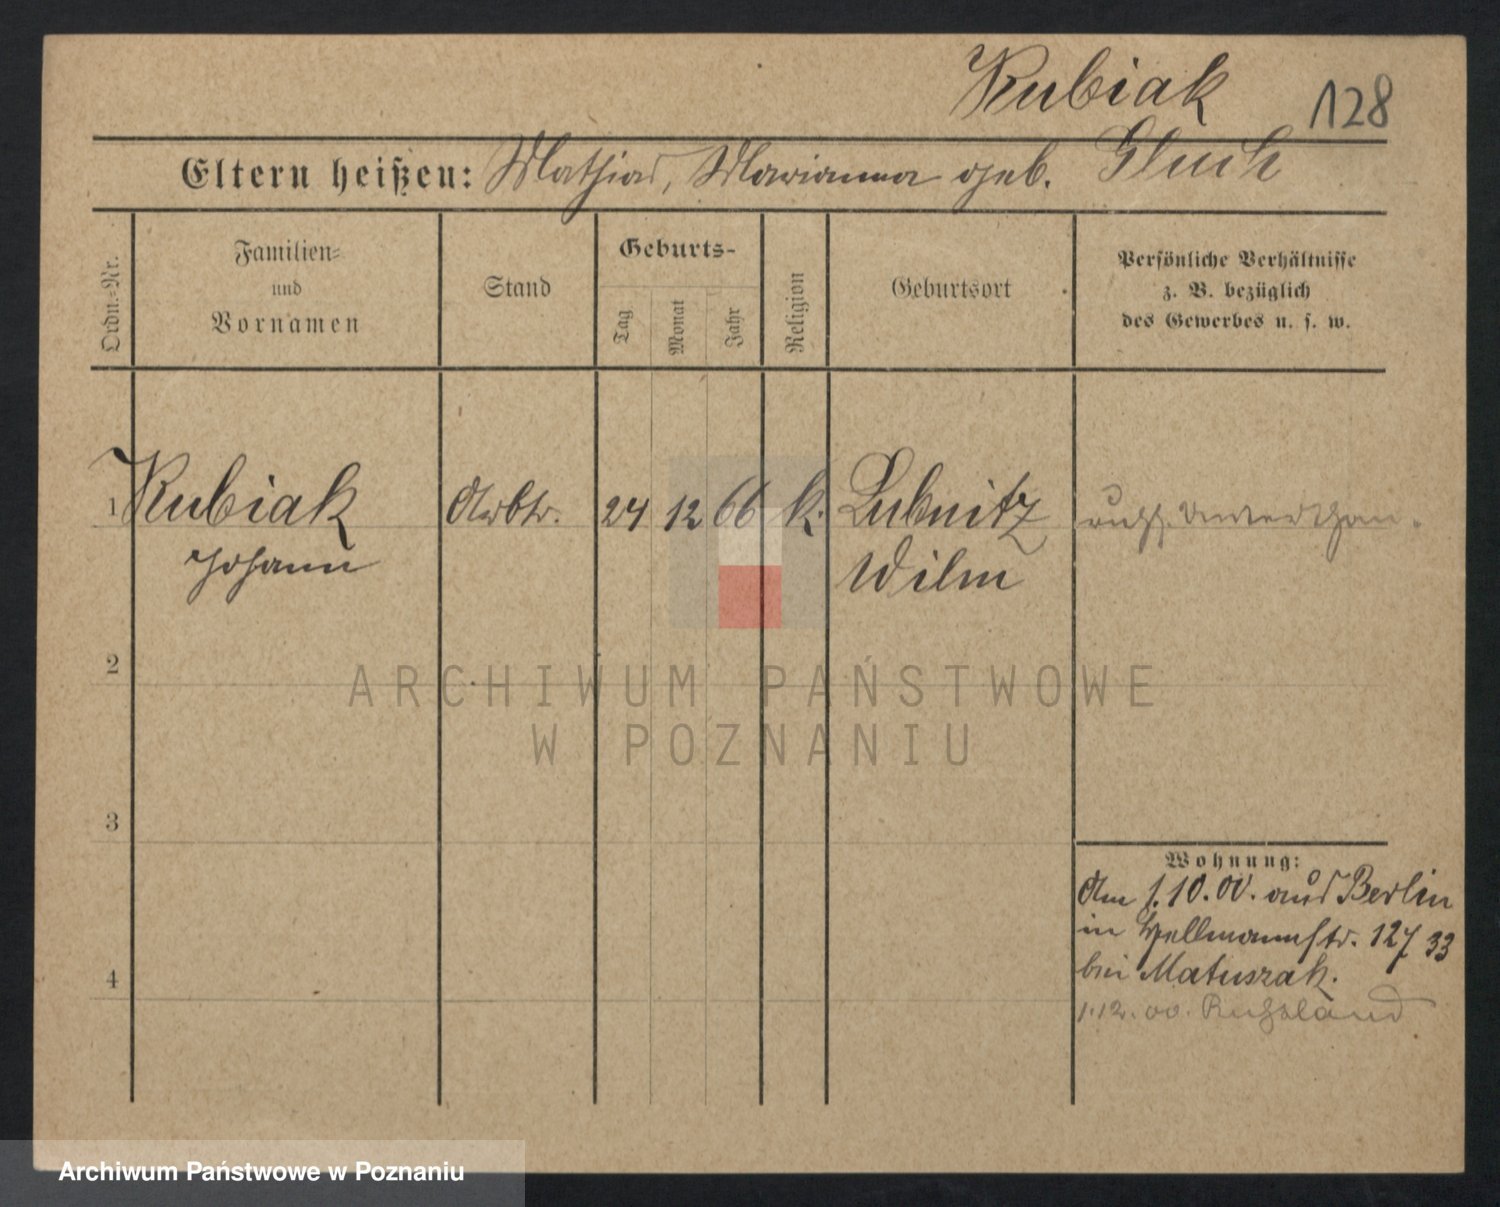 Kubiak 128
Eltern heißen: Mathias, Marianna geb. Gluch
Ordn.-Nr.
Familien-
und
Vornamen
Stand
Geburts-
Tag
Monat
Jahr
Religion
Geburtsort
Persönliche Verhältnisse
z. B. bezüglich
des Gewerbes u. s. w.
1 Kubiak Arbtr. 24 12 66 k. Lubnitz russ. Unterthan.
Johann Wilm
2
ARCHIWUM PAŃSTWOWE
W POZNANIU
3
Wohnung:
Am 1.10.00. aus Berlin
in 127 33
bei Matuszak.
4
1.12.00. Russland
Archiwum Państwowe w Poznaniu